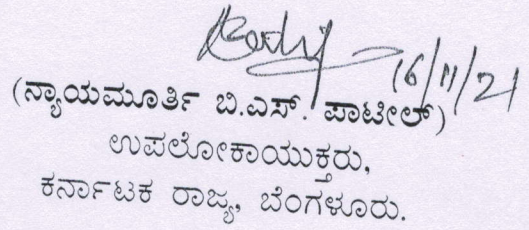 16/11/21
(ನ್ಯಾಯಮೂರ್ತಿ ಬಿ.ಎಸ್. ಪಾಟೀಲ್)
ಉಪಲೋಕಾಯುಕ್ತರು,
ಕರ್ನಾಟಕ ರಾಜ್ಯ, ಬೆಂಗಳೂರು.